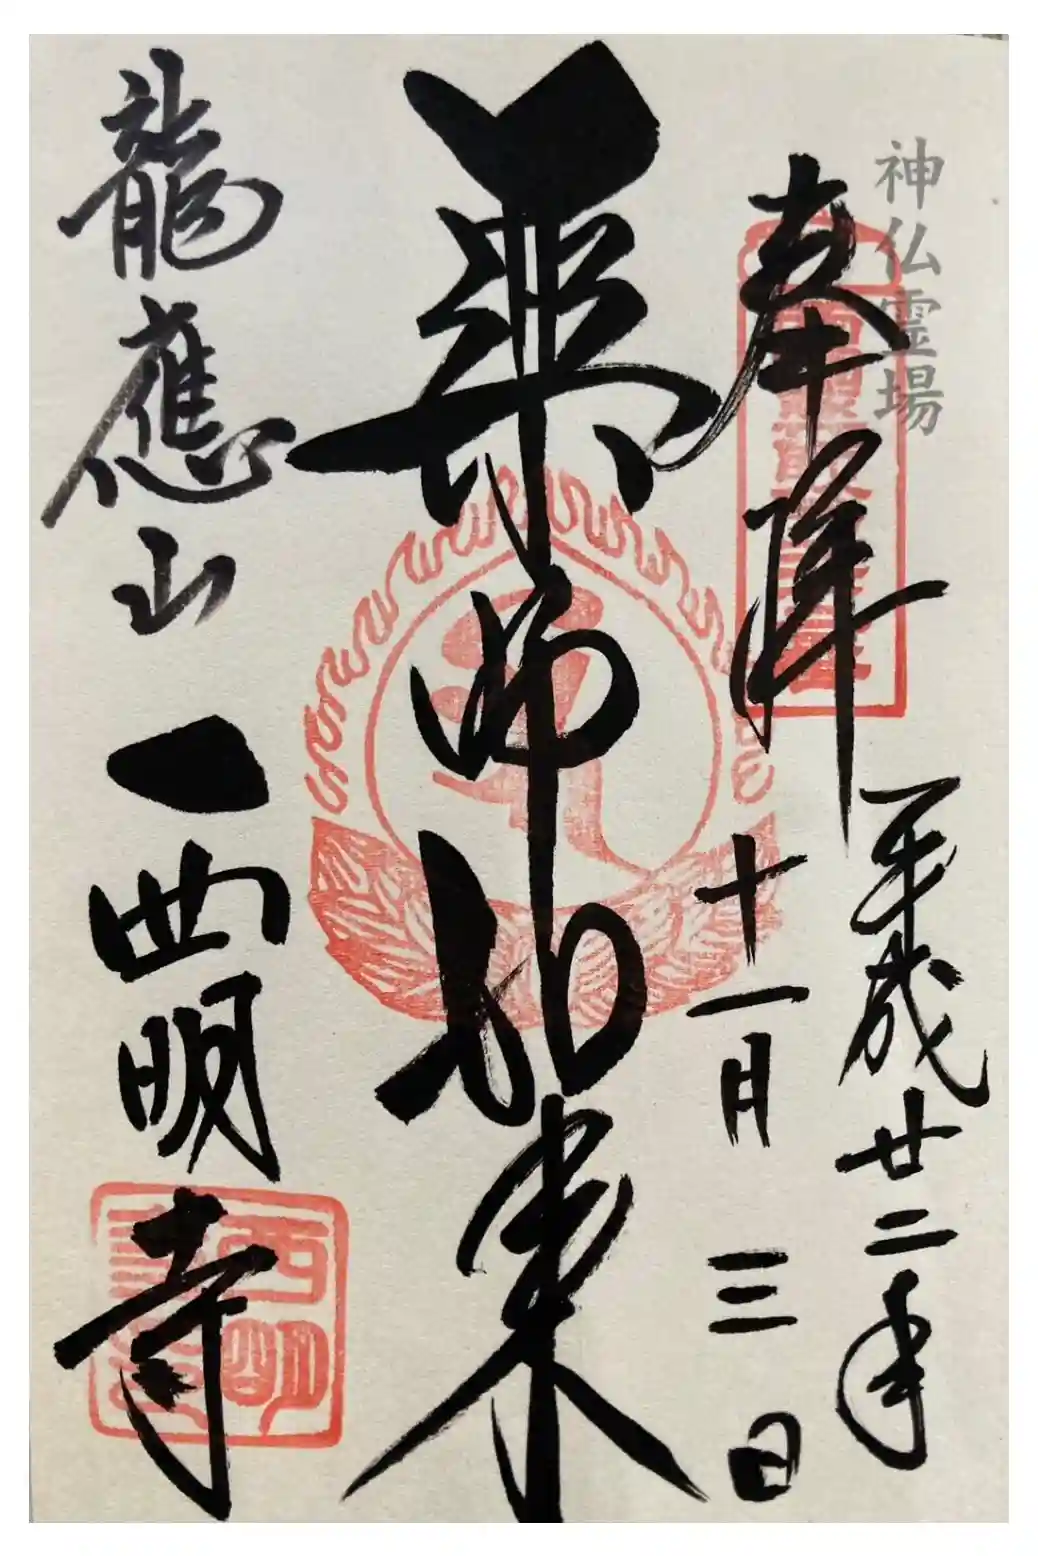 神仏霊場
奉拝
平成廿二年
十一月三日
薬師如来
龍應山
西明寺